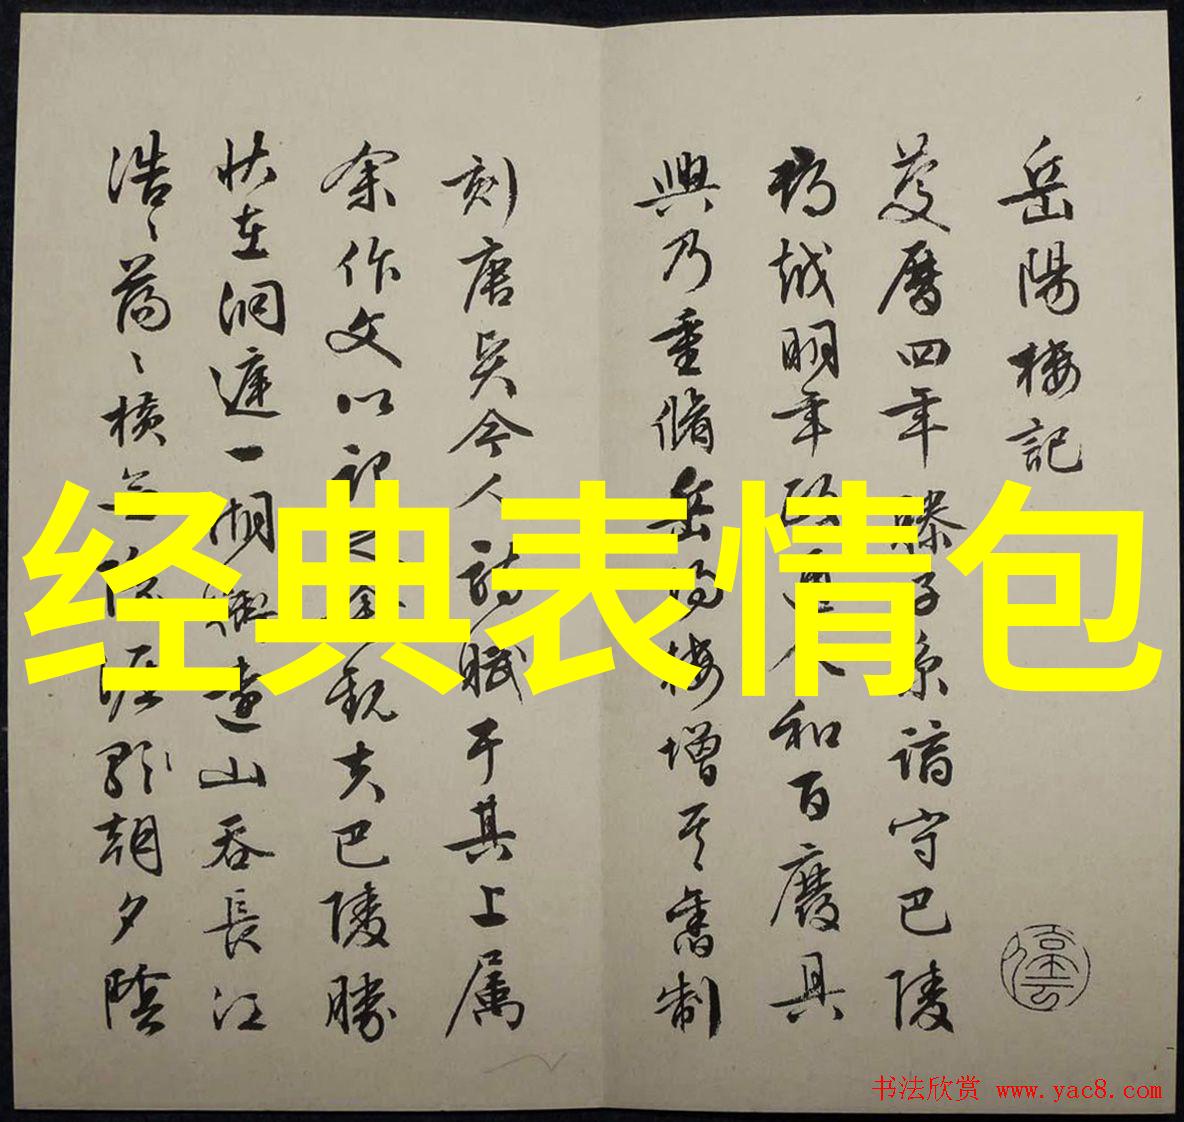 岳陽樓記
慶曆四年滕子京謫守巴陵
郡越明年政通人和百廢具
興乃重脩岳陽樓增其舊制
刻唐賢今人詩賦于其上属
余作文以記之余觀夫巴陵勝
狀在洞庭一湖銜遠山吞長江
浩〻蕩〻橫無際涯朝夕陰
经典表情包
书法欣赏 www.yac8.com